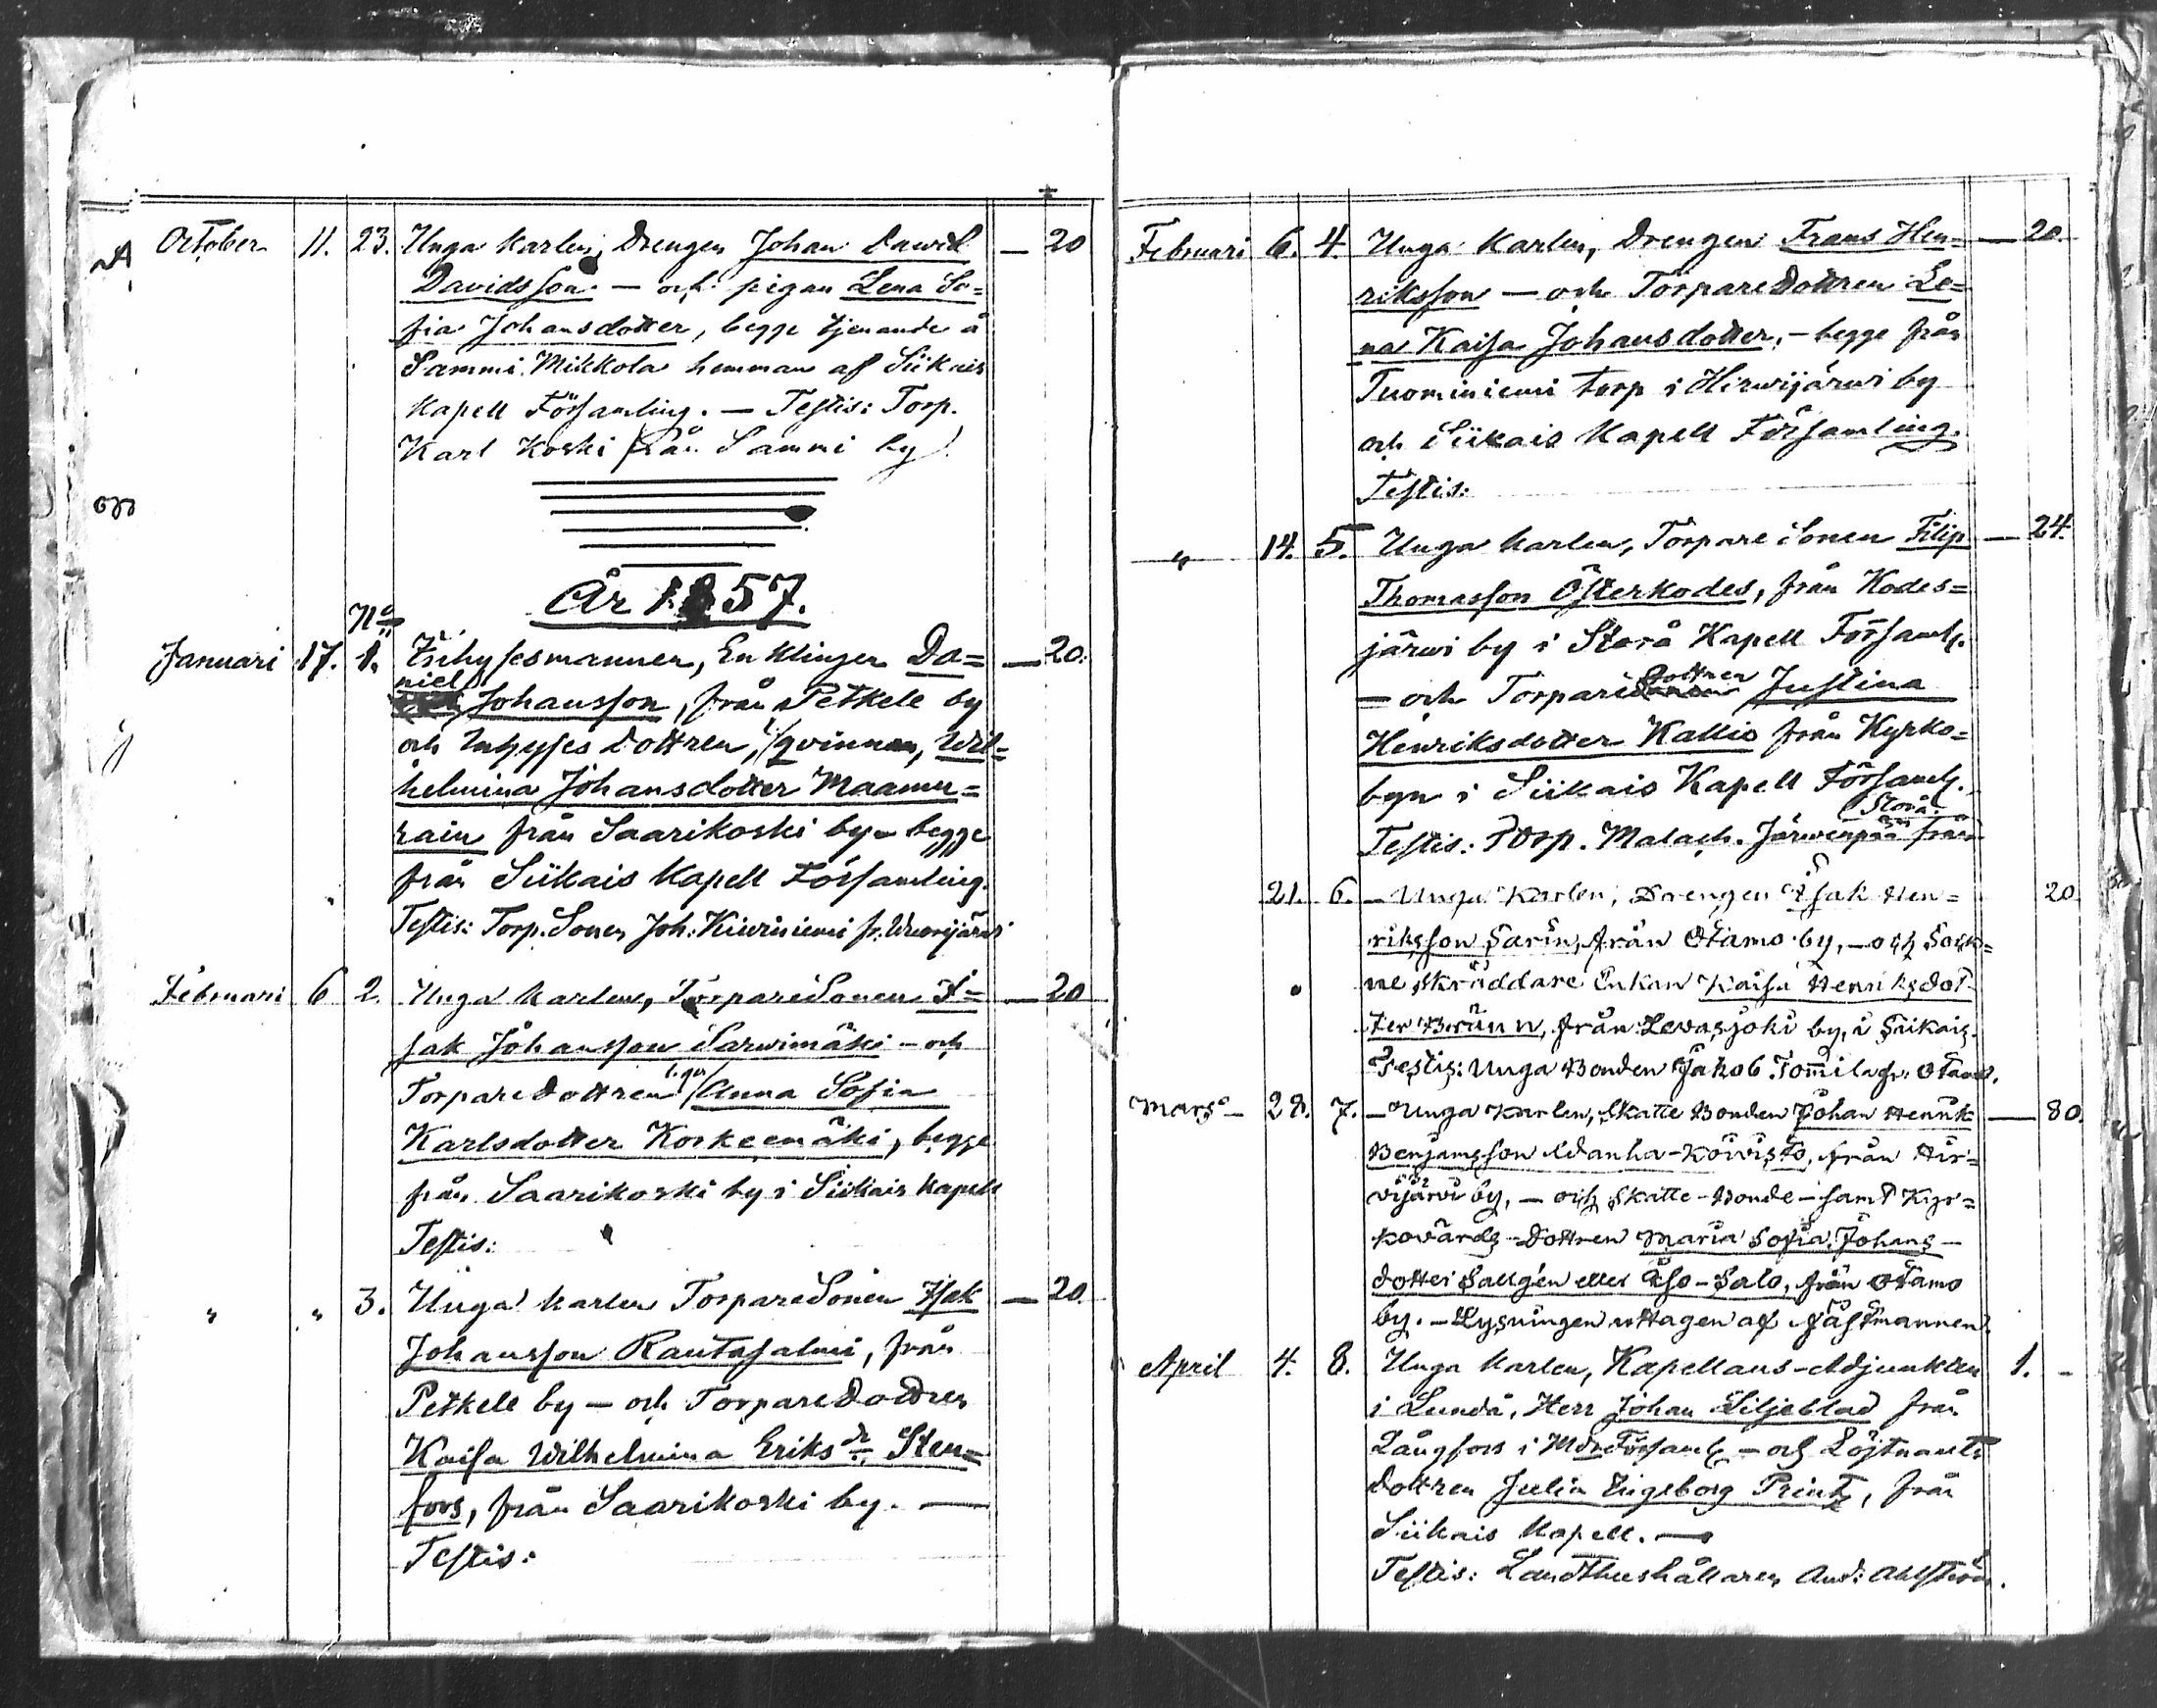 October 11. 23. Unga Karlen, Drengen Johan Dawid — 20
Davidsson. — och pigan Lena So=
fia Johansdotter, begge tjenande å
Sammi Mikkola hemman af Siikais
Kapell Församling. — Testis: Torp.
Karl Koski från Sammi by.
År 1857.
No
Januari 17. 1. Inhysesmannen, Enklingen Da= — 20.
niel
Johansson, från Petkele by
och Inhyses dottren, qvinnan, Wil=
helmina Johansdotter Maamu=
rain från Saarikoski by — begge
från Siikais Kapell Församling.
Testis: Torp. Sonen Joh: Kiwiniemi fr.
Februari 6 2. Unga Karlen, TorpareSonen I= — 20
sak Johansson Sarwimäki — och
TorpareDottren Anna Sofia
Karlsdotter Koskeenäki, begge
från Saarikoski by i Siikais Kapell
Testis:
" " 3. Unga Karlen TorpareSonen Isak — 20.
Johansson Rautasalmi, från
Petkele by — och TorpareDottren
Kaisa Wilhelmina Eriksdr Sten=
fors, från Saarikoski by. —
Testis:
Februari 6. 4. Unga Karlen, Drengen Frans Hen= — 20.
riksson — och TorpareDottren Le=
na Kaisa Johansdotter, — begge från
Tuominiemi torp i Hirwijärwi by
och Siikais Kapell Församling.
Testis:
" 14. 5. Unga Karlen, TorpareSonen Filip — 24.
Thomasson Österkodes, från Kodes=
järwi by i Storå Kapell Församl.
— och Torpare dottren Justina
Henriksdotter Kallio från Kyrko=
byn i Siikais Kapell Församl.
Storå.
Testis: Torp. Malach. Järwenpää från
21. 6. — Unga Karlen, Drengen Isak Hen= 20
riksson Sarin, från Otamo by, — och Sock=
ne Skräddare Enkan Kaisa Henriksdot=
ter Brunn, från Lewasjoki by, i Siikais.
Testis: Unga Bonden Jakob Tomila fr. Otamo.
Mars — 28. 7. — Unga Karlen, Skatte Bonden Johan Henrik — 80.
Benjamsson Wanha-Köwisto, från Hir=
wijärwi by, — och Skatte-Bonde — samt Kyr=
kowärds-Dottren Maria Sofia Johans—
dotter Sallgén eller Iso-Salo, från Otamo
by. — Lysningen uttagen af Fästmannen.
April 4. 8. Unga Karlen, Kapellans-Adjunkten 1. -
i Lundå, Herr Johan Liljeblad från
Långfors i Församl — och Löjtnants
dottren Julia Engeborg Printz, från
Siikais Kapell. —
Testis: Landthushållaren And: Ahlström.